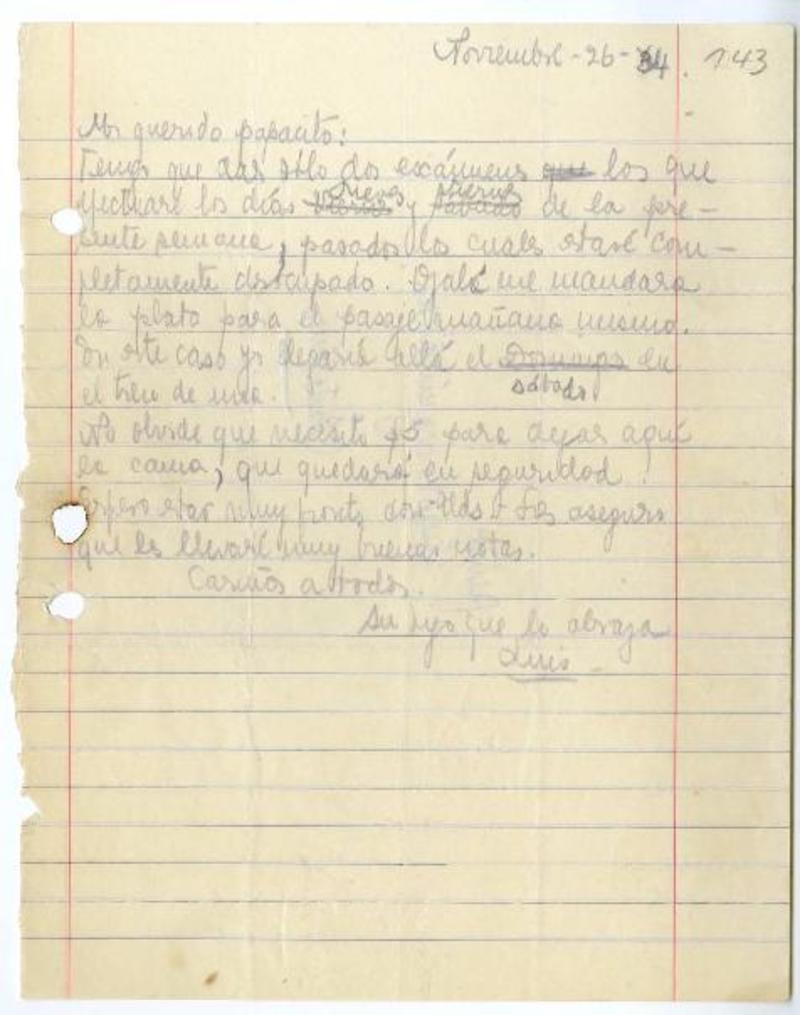 Noviembre - 26 - 34. 143
Mi querido papacito:
Tengo que dar sólo dos exámenes que los que
jueves viernes
efectuaré los días y sábado de la pre-
sente semana, pasados los cuales estaré com-
pletamente desocupado. Ojalá me mandara
la plata para el pasaje mañana mismo.
En este caso yo llegaría allá el Domingo en
sábado
el tren de una.
No olvide que necesito para dejar aquí
la cama, que quedará en seguridad.
Espero estar muy pronto con Uds. Les aseguro
que les llevaré muy buenas notas.
Cariños a todos.
Su hijo que lo abraza
Luis